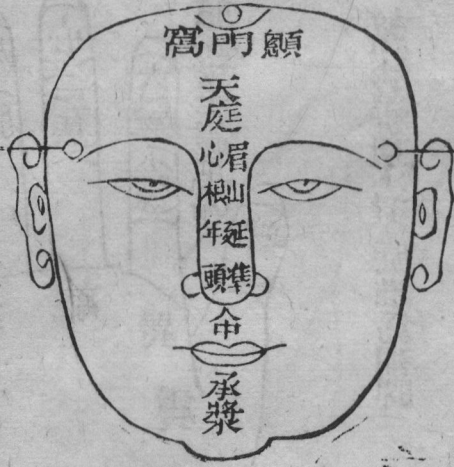 顖門窩
天庭
眉心
山根
延年
準頭
人中
承漿